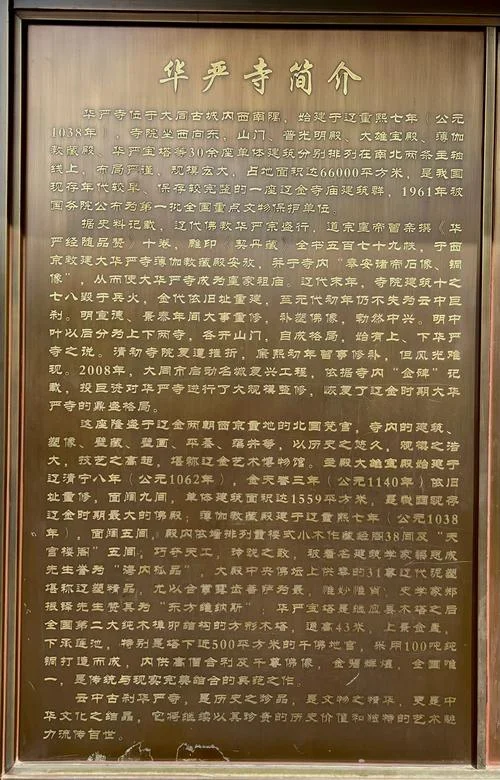 华严寺简介
华严寺位于大同古城内西南隅，始建于辽重熙七年（公元
1038年），寺院坐西向东，山门、普光明殿、大雄宝殿、薄伽
教藏殿、华严宝塔等30余座单体建筑分别排列在南北两条主轴
线上，布局严谨，规模宏大，占地面积达66000平方米，是我国
现存年代较早、保存较完整的一座辽金寺庙建筑群，1961年被
国务院公布为第一批全国重点文物保护单位。
据史料记载，辽代佛教华严宗盛行，道宗皇帝曾亲撰《华
严经随品赞》十卷，雕印《契丹藏》全书五百七十九帙，于西
京敕建大华严寺薄伽教藏殿安放，并于寺内“奉安诸帝石像、铜
像”，从而使大华严寺成为皇家祖庙。辽代末年，寺院建筑十之
七八毁于兵火，金代依旧址重建，至元代初年仍不失为云中巨
刹。明宣德、景泰年间大事重修，补塑佛像，勃然中兴。明中
叶以后分为上下两寺，各开山门，自成格局，始有上、下华严
寺之说。清初寺院复遭摧折，康熙初年暂事修补，但风光难
现。2008年，大同市启动名城复兴工程，依据寺内“金碑”记
载，投巨资对华严寺进行了大规模整修，恢复了辽金时期大华
严寺的鼎盛格局。
这座隆盛于辽金两朝西京重地的北国梵宫，寺内的建筑、
塑像、壁藏、壁画、平棊、藻井等，以历史之悠久，规模之浩
大，技艺之高超，堪称辽金艺术博物馆。主殿大雄宝殿始建于
辽清宁八年（公元1062年），金天眷三年（公元1140年）依旧
址重修，面阔九间，单体建筑面积达1559平方米，是我国现存
辽金时期最大的佛殿；薄伽教藏殿建于辽重熙七年（公元1038
年），面阔五间，殿内依墙排列重楼式小木作藏经阁38间及“天
宫楼阁”五间，巧夺天工，玲珑之致，被著名建筑学家梁思成
先生誉为“海内孤品”，大殿中央佛坛上供奉的31尊辽代泥塑
堪称辽塑精品，尤以合掌露齿菩萨为最，雕妙雕肖，史学家郑
振铎先生赞其为“东方维纳斯”。华严宝塔是继应县木塔之后
全国第二大纯木榫卯结构的方形木塔，通高43米，上景金盘，
下承莲池，特别是塔下近500平方米的千佛地宫，采用100吨纯
铜打造而成，内供高僧舍利及千尊佛像，金碧辉煌，全国唯
一，是传统与现实完美结合的典范之作。
云中古刹华严寺，是历史之珍品，是文物之精华，更是中
华文化之结晶，它将继续以其珍贵的历史价值和独特的艺术魅
力流传百世。